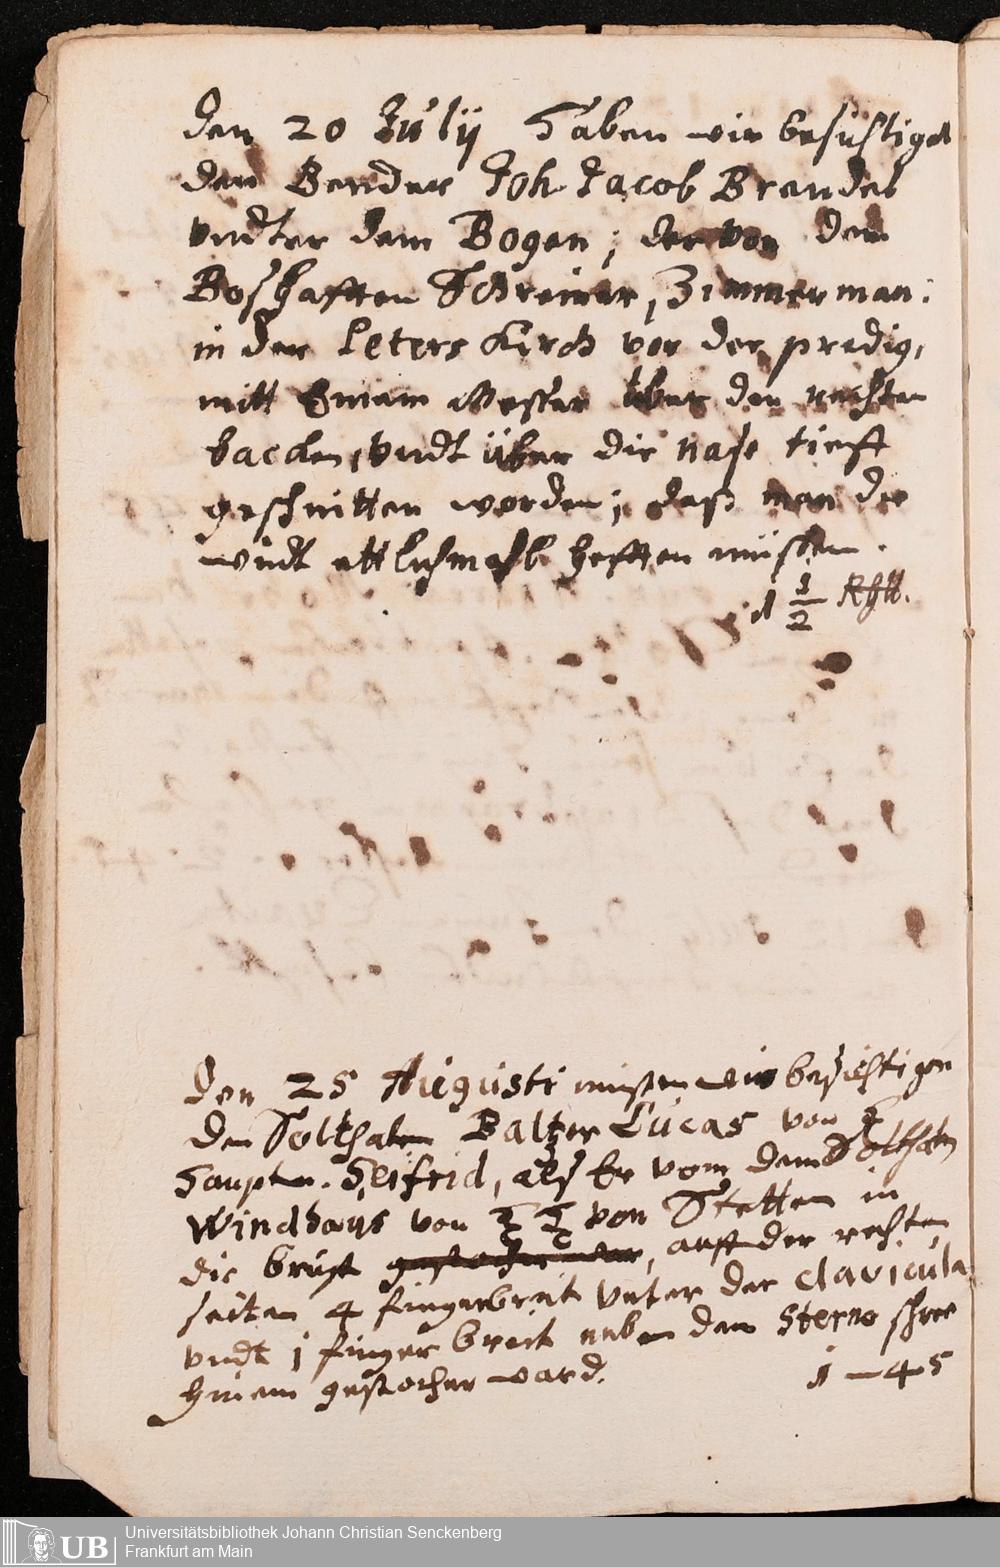 Den 20 Július haben wir besichtiget
den Bender Joh Jacob Brendel
vndter dem Bogen; der von dem
Boßhafften Schreiner, Zimmerman:
in der Peters Kirch vor der predig,
mitt Einem Messer über den rechten
backen, vndt über die nase tieff
geschnitten worden; daß man die
wundt ettlichmahl hefften müssen.
1 1/2 Rthl.
Den 25 Augusti musten wir besichtigen
den Solthaten Balzer Lucas von
Hauptm. Seifrid, alß Er vom dem Solthaten
Windhauß von von Stetten in
die brust gestochen, auff der rechten
seiten 4 fingerbreit vnter der clavicula
vndt 1 finger breit neben dem Sterno
hinein gestochen ward.
1 – 45
UB
Universitätsbibliothek Johann Christian Senckenberg
Frankfurt am Main